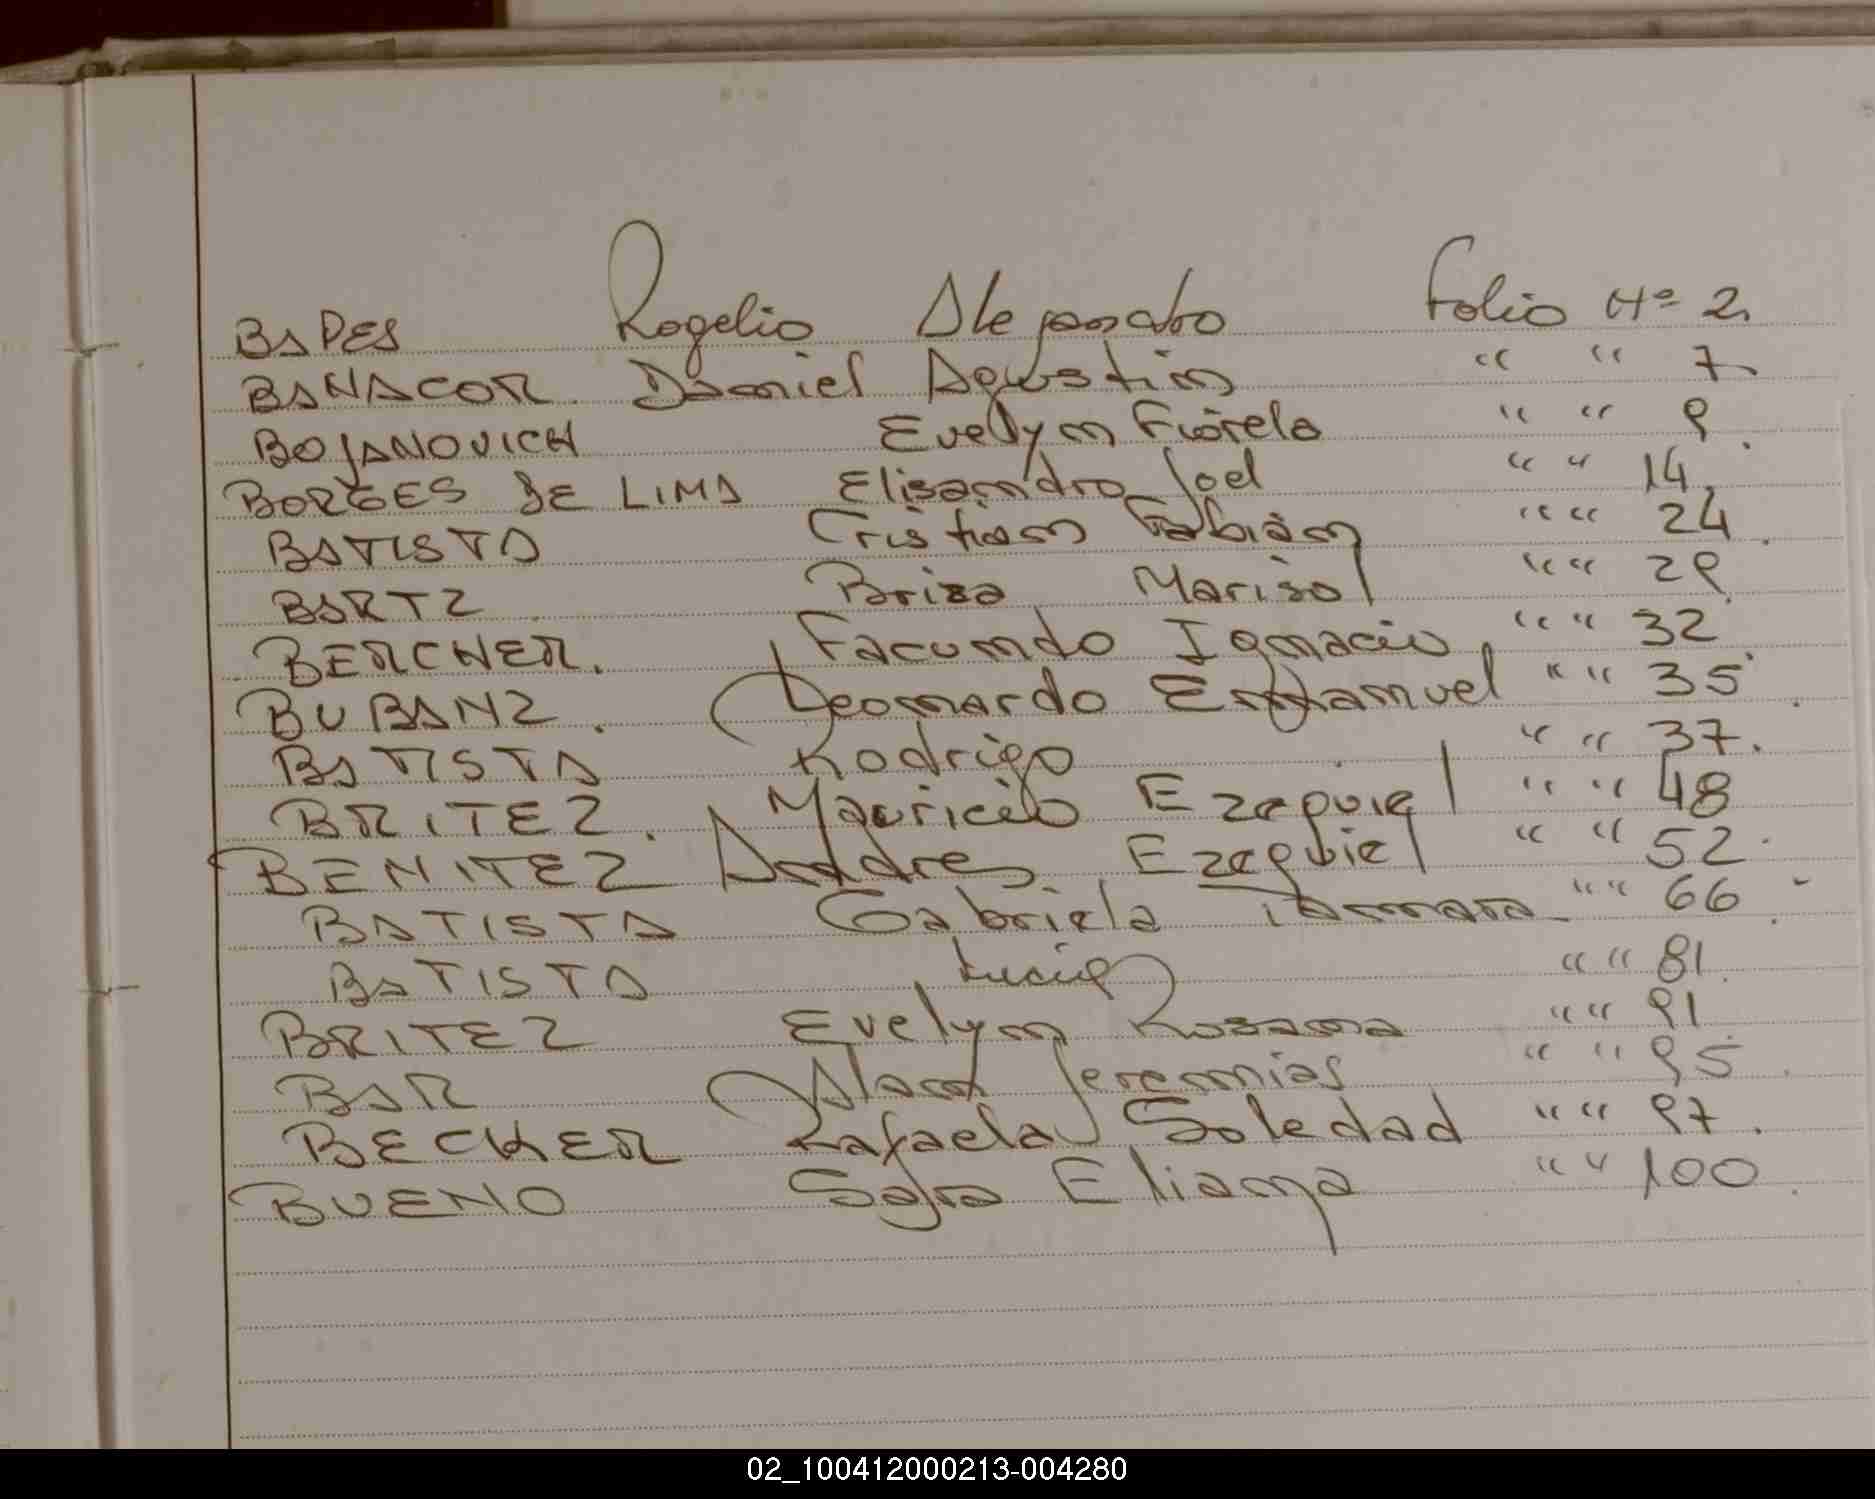 BAPES Rogelio Alejandro Folio Nº 2.
BANACOR. Daniel Agustin " " 7.
BOJANOVICH Evelyn Fiorela " " 9.
BORGES DE LIMA Elisandro Joel " " 14.
BATISTA Cristian Fabián " " 24.
BARTZ Briza Marisol " " 29
BERCHER. Facundo Ignacio " " 32
BUBANZ. Leonardo Emmanuel " " 35.
BATISTA Rodrigo " " 37.
BRITEZ. Mauricio Ezequiel " " 48
BENITEZ Andres Ezequiel " " 52.
BATISTA Gabriela Tamara " " 66.
BATISTA Lucia " " 81.
BRITEZ Evelyn Rosana " " 91
BAR Alan Jeremias " " 95.
BECKER Rafaela Soledad " " 97.
BUENO Sofia Eliana " " 100.
02_100412000213-004280